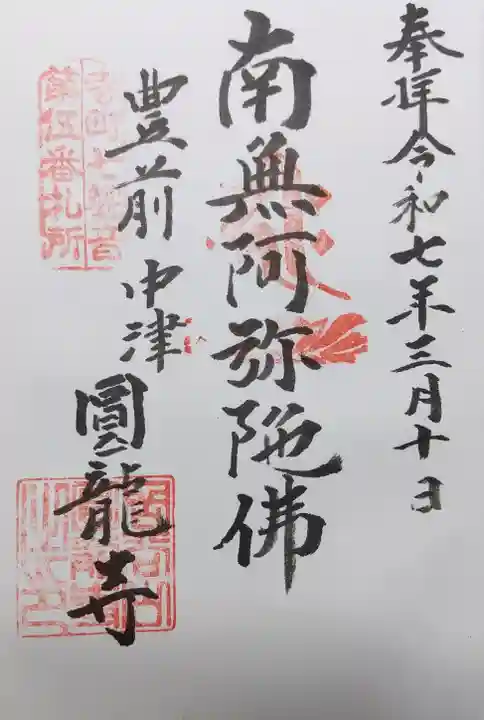 奉拝令和七年三月十日
南無阿弥陀佛
豊前中津圓龍寺
第伍番札所